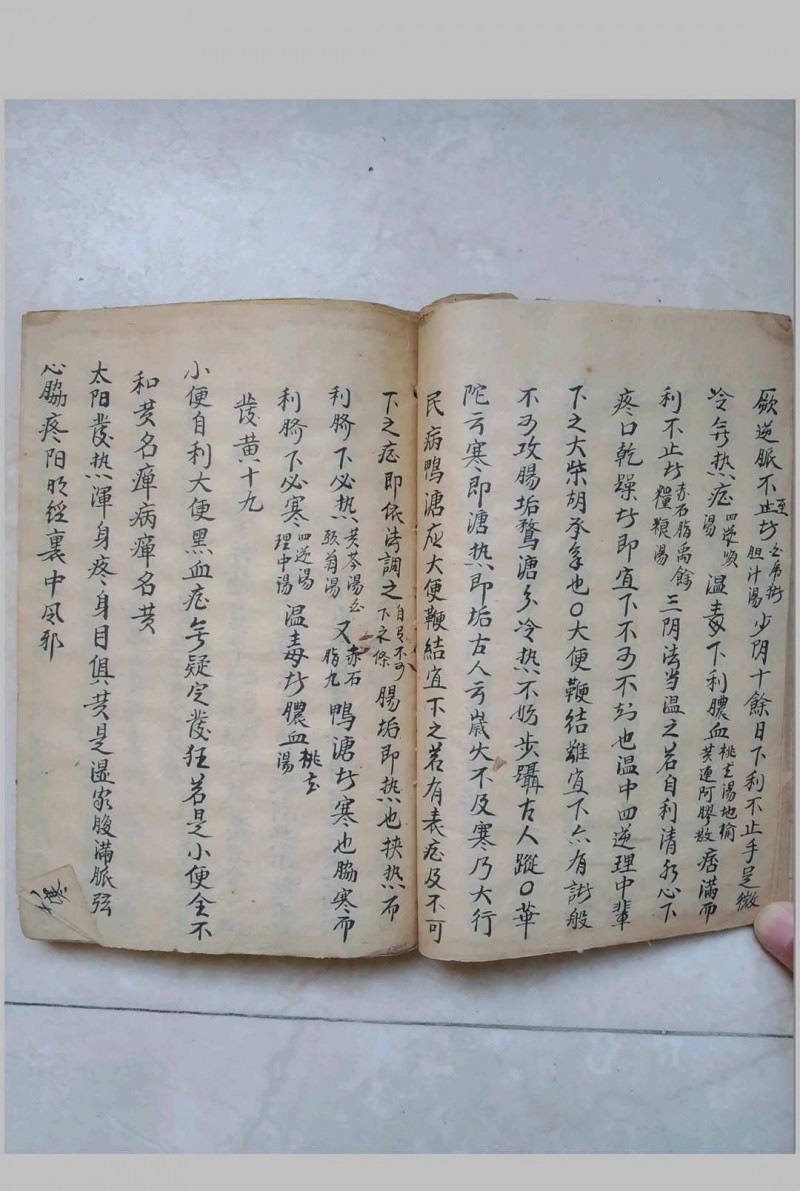 厥逆脈不至止者白虎湯胆汁湯少阴十餘日下利不止手足微
冷無热症四逆湯順湯温毒下利膿血桃花湯地榆黄連阿膠散痞满而
利不止者赤石脂禹餘糧粮湯三阴法当温之若自利清水心下
疼口乾躁者即宜下不可不知也温中四逆理中輩
下之大柴胡承氣也〇大便鞕结雖宜下亦有許般
不可攻腸垢鶩溏分冷热不妨步躡古人蹤〇華
陀云寒即溏热即垢古人云歲火不及寒乃大行
民病鴨溏应大便鞕结宜下之若有表症及不可
下之症即依法調之自有不可下之條腸垢即热也挟热而
利臍下必热黄芩湯白頭翁湯又赤石脂丸鴨溏者寒也脇寒而
利臍下必寒四逆湯理中湯温毒者膿血桃花湯
發黄十九
小便自利大便黑血症無疑定發狂若是小便全不
和黄名瘅病瘅名黄
太阳發热渾身疼身目俱黄是濕家腹满脈弦
心脇疼阳明經裏中风邪